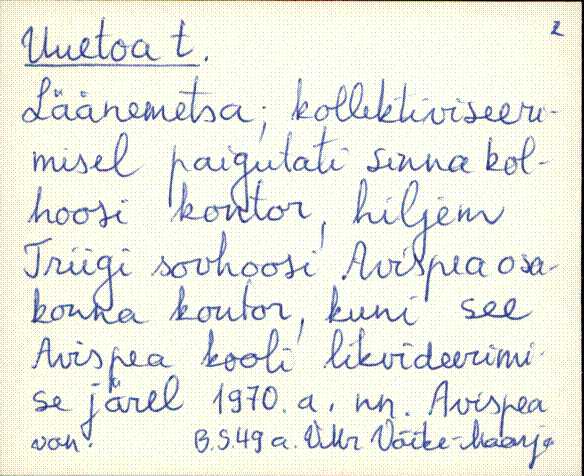 2
Uuetoa t.
Läänemetsa; kollektiviseeri-
misel paigutati sinna kol-
hoosi kontor, hiljem
Triigi sovhoosi Avispea osa-
konna kontor, kuni see
Avispea kooli likvideerimi-
se järel 1970. a. nn. Avispea
B.S.49 a. VMr Väike-Maarja